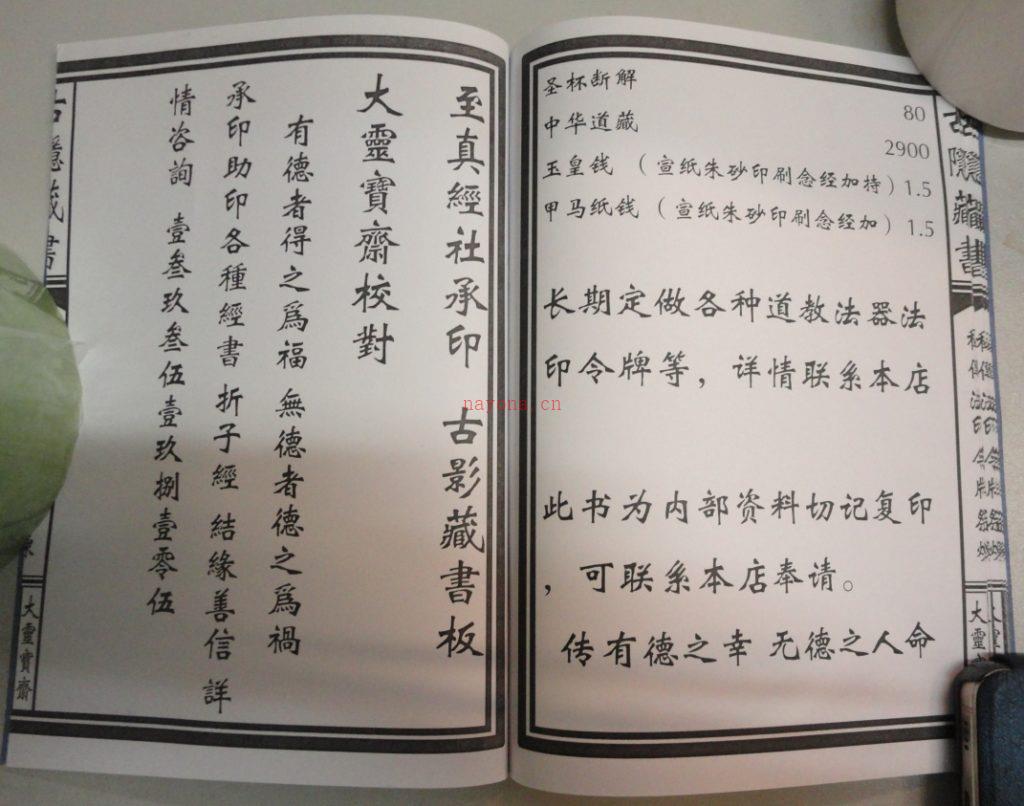 至真經社承印 古影藏書板
大靈寶齋校對
有德者得之爲福 無德者德之爲禍
承印助印各種經書 折子經 結緣善信 詳
情咨詢 壹叁玖叁伍壹玖捌壹零伍
大靈寶齋
圣杯断解 80
中华道藏 2900
玉皇钱 （宣纸朱砂印刷念经加持）1.5
甲马纸钱 （宣纸朱砂印刷念经加）1.5
长期定做各种道教法器法
印令牌等，详情联系本店
此书为内部资料切记复印
，可联系本店奉请。
传有德之幸 无德之人命
隱藏書
大靈
nayona.cn